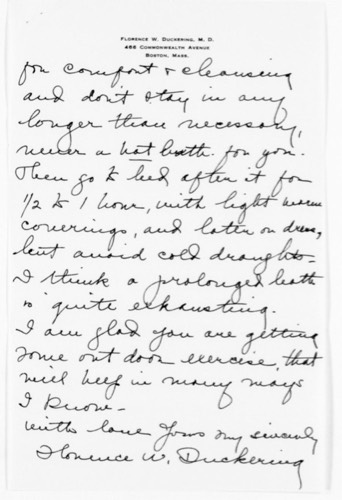 FLORENCE W. DUCKERING, M. D.
466 COMMONWEALTH AVENUE
BOSTON, MASS.
for comfort & cleansing
and don't stay in any
longer than necessary,
never a hot bath for you.
Then go to bed after it for
1/2 to 1 hour, with light warm
coverings, and later on dress,
but avoid cold draughts -
I think a prolonged bath
is quite exhausting.
I am glad you are getting
some out door exercise, that
will help in many ways
I know -
With love Yours very sincerely
Florence W. Duckering